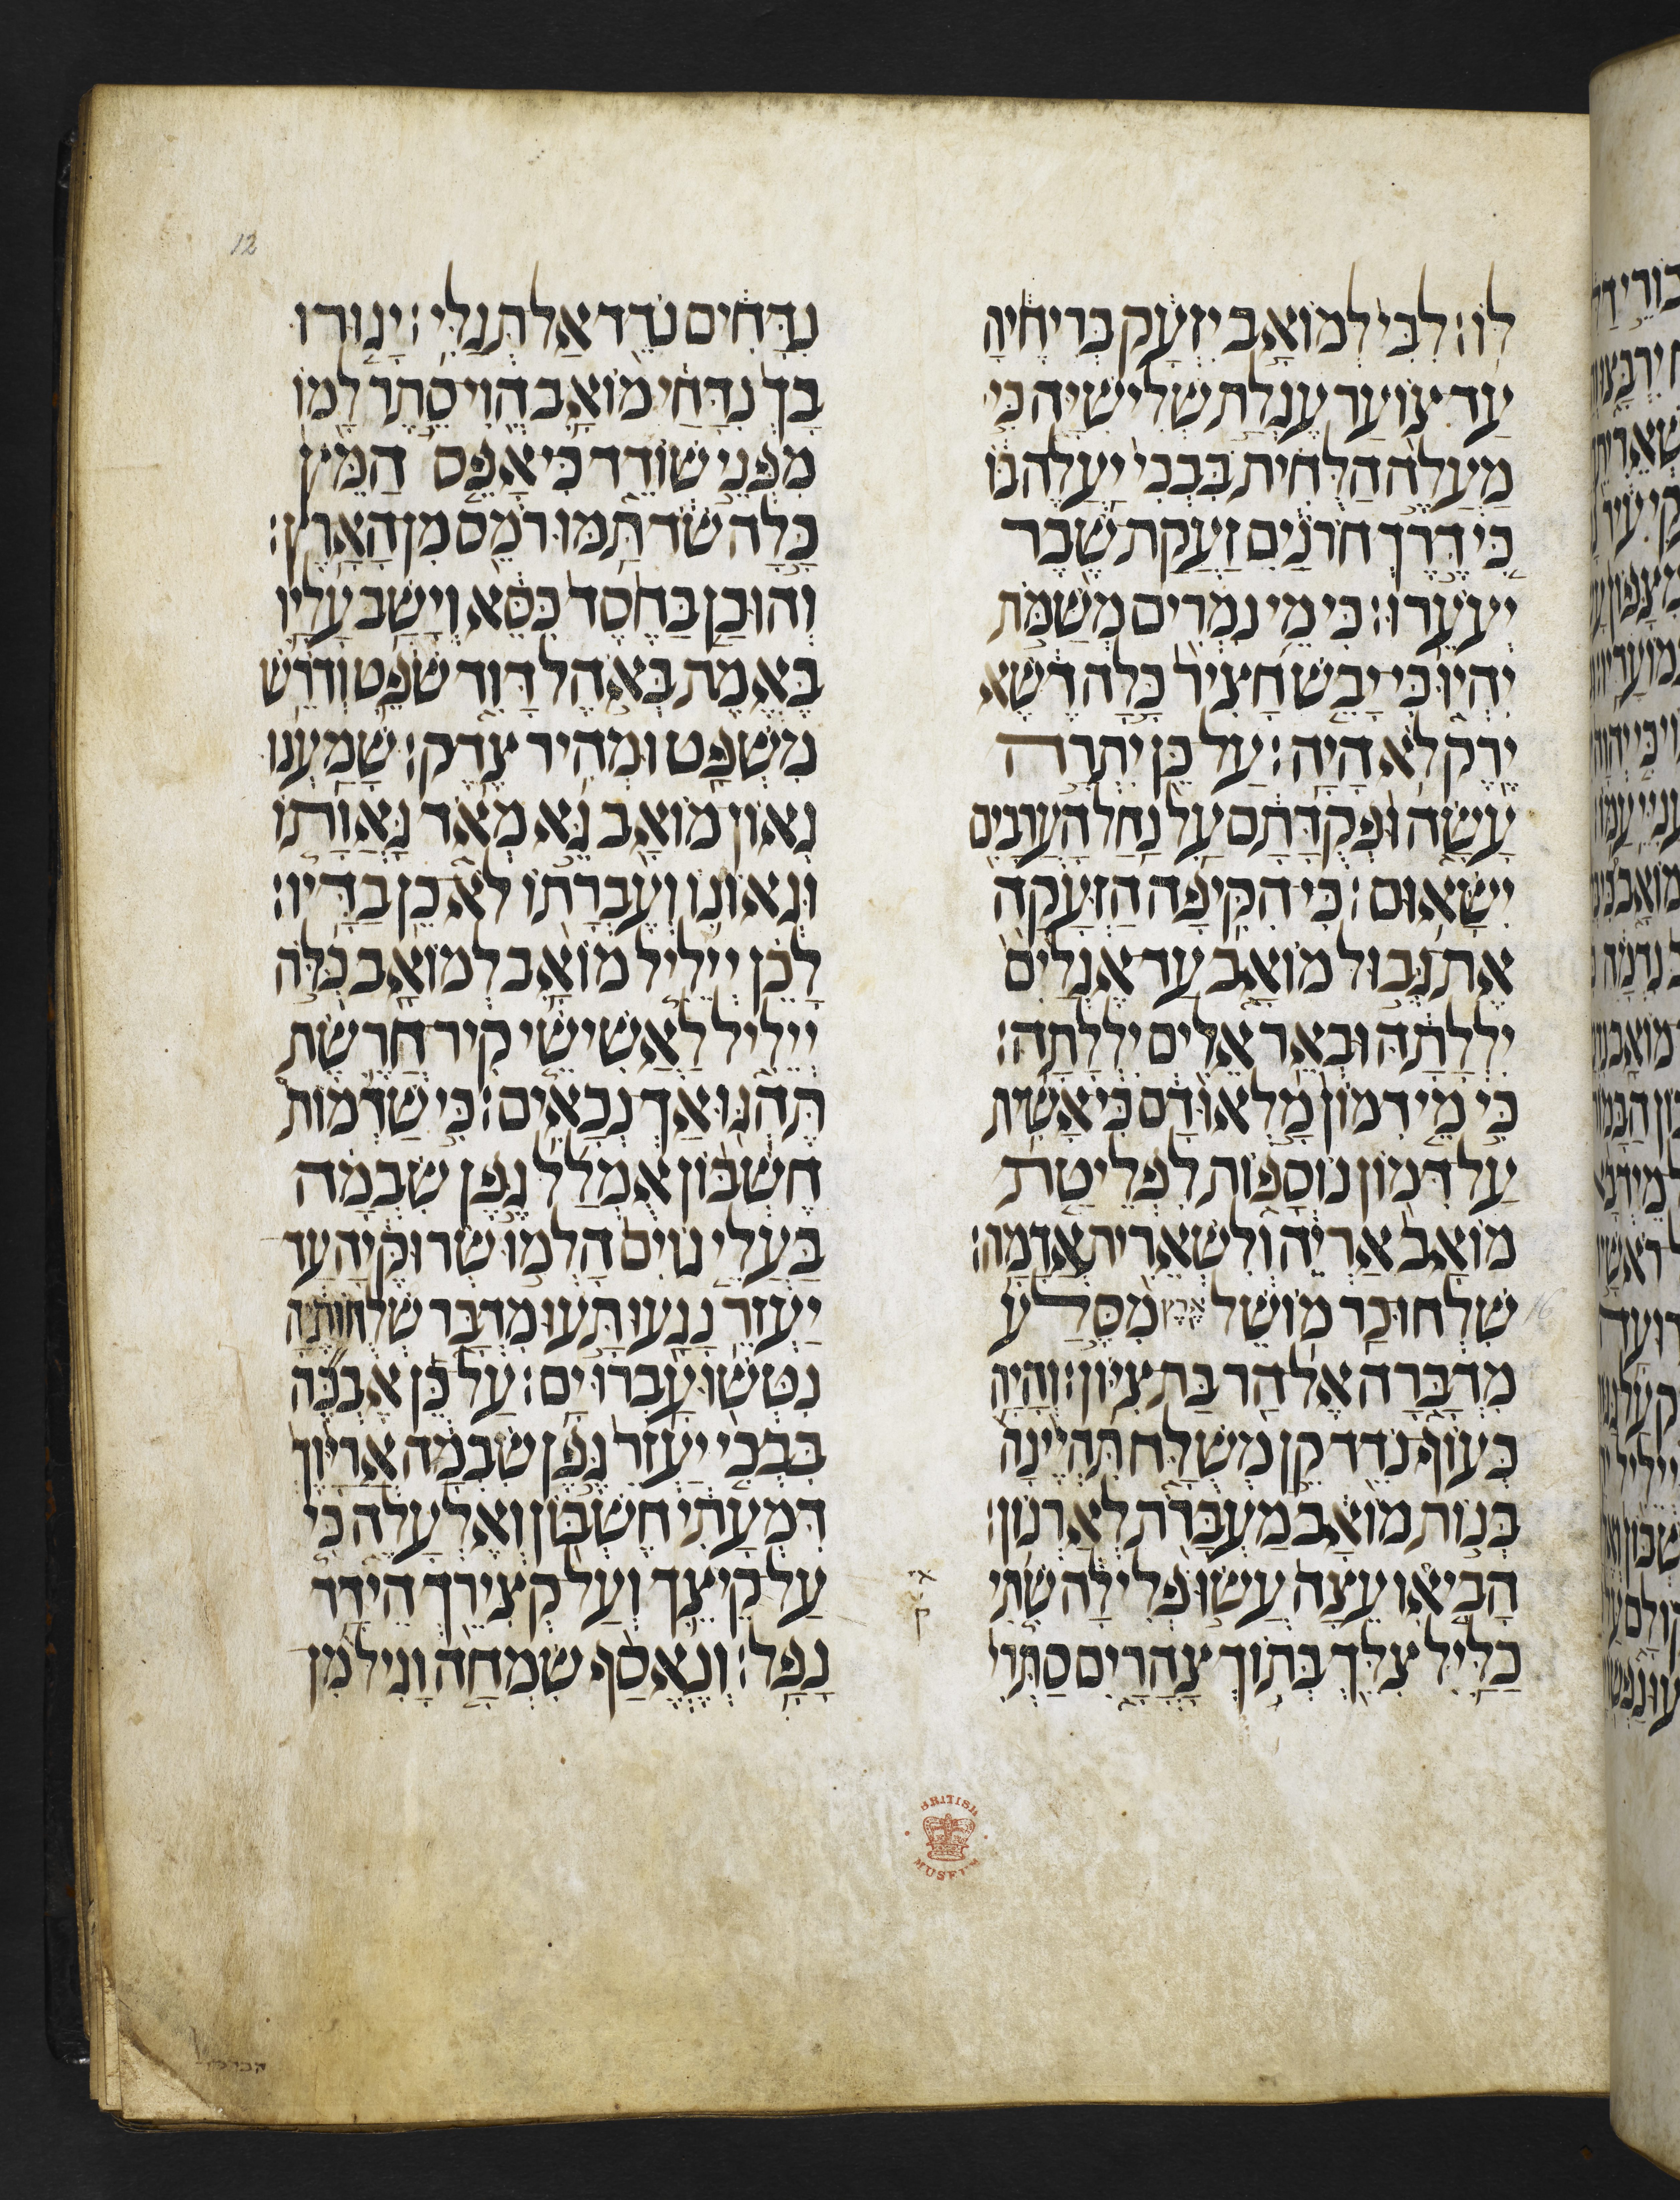 12
לוֹ׃ לִבִּי לְמוֹאָב יִזְעָק בְּרִיחֶיהָ
עַד צוֹעַר עֶגְלַת שְׁלִישִׁיָּה כִּי
מַעֲלֵה הַלֻּחִית בִּבְכִי יַעֲלֶה בּוֹ
כִּי דֶּרֶךְ חֹרֹנַיִם זַעֲקַת שֶׁבֶר
יְעֹעֵרוּ׃ כִּי מֵי נִמְרִים מְשַׁמֹּת
יִהְיוּ כִּי יָבֵשׁ חָצִיר כָּלָה דֶשֶׁא
יֶרֶק לֹא הָיָה׃ עַל כֵּן יִתְרָה
עָשָׂה וּפְקֻדָּתָם עַל נַחַל הָעֲרָבִים
יִשָּׂאוּם׃ כִּי הִקִּיפָה הַזְּעָקָה
אֶת גְּבוּל מוֹאָב עַד אֶגְלַיִם
יִלְלָתָהּ וּבְאֵר אֵלִים יִלְלָתָהּ׃
כִּי מֵי דִמוֹן מָלְאוּ דָם כִּי אָשִׁית
עַל דִּמוֹן נוֹסָפוֹת לִפְלֵיטַת
מוֹאָב אַרְיֵה וְלִשְׁאֵרִית אֲדָמָה׃
שִׁלְחוּ כַר מוֹשֵׁל אֶרֶץ מִסֶּלַע
16
מִדְבָּרָה אֶל הַר בַּת צִיּוֹן׃ וְהָיָה
כְּעוֹף נֹדֵד קֵן מְשֻׁלָּח תִּהְיֶינָה
בְּנוֹת מוֹאָב מַעְבָּרֹת לְאַרְנוֹן׃
הָבִיאּוּ עֵצָה עֲשׂוּ פְלִילָה שִׁתִי
כַלַּיִל צִלֵּךְ בְּתוֹךְ צָהֳרָיִם סַתְּרִי
נִדָּחִים נֹדֵד אַל תְּגַלִּי׃ יָגוּרוּ
בָךְ נִדָּחַי מוֹאָב הֱוִי סֵתֶר לָמוֹ
מִפְּנֵי שׁוֹדֵד כִּי אָפֵס הַמֵּץ
כָּלָה שֹׁד תַּמּוּ רֹמֵס מִן הָאָרֶץ׃
וְהוּכַן בַּחֶסֶד כִּסֵּא וְיָשַׁב עָלָיו
בֶּאֱמֶת בְּאֹהֶל דָּוִד שֹׁפֵט וְדֹרֵשׁ
מִשְׁפָּט וּמְהִיר צֶדֶק׃ שָׁמַעְנוּ
גְאוֹן מוֹאָב גֵּא מְאֹד גַּאֲוָתוֹ
וּגְאוֹנוֹ וְעֶבְרָתוֹ לֹא כֵן בַּדָּיו׃
לָכֵן יְיֵלִיל מוֹאָב לְמוֹאָב כֻּלֹּה
יְיֵלִיל לַאֲשִׁישֵׁי קִיר חֲרֶשֶׂת
תֶּהְגּוּ אַךְ נְכָאִים׃ כִּי שַׁדְמוֹת
חֶשְׁבּוֹן אֻמְלָל גֶּפֶן שִׂבְמָה
בַּעֲלֵי גוֹיִם הָלְמוּ שְׂרוּקֶּיהָ עַד
יַעְזֵר נָגָעוּ תָּעוּ מִדְבָּר שְׁלֻחוֹתֶיהָ
נִטְּשׁוּ עָבְרוּ יָם׃ עַל כֵּן אֶבְכֶּה
בִּבְכִי יַעְזֵר גֶּפֶן שִׂבְמָה אֲרַיָּוֶךְ
דִּמְעָתִי חֶשְׁבּוֹן וְאֶלְעָלֵה כִּי
עַל קֵיצֵךְ וְעַל קְצִירֵךְ הֵידָד
נָפָל׃ וְנֶאֱסַף שִׂמְחָה וָגִיל מִן
BRITISH MUSEUM